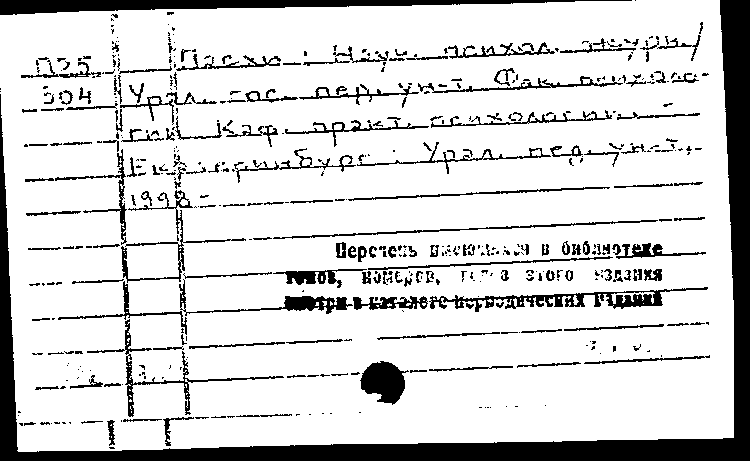 П25 Пасхи : Науч. психол. журн. /
304 Урал. гос. пед. ун-т. Фак. психоло-
гии. Каф. практ. психологии. -
Екатеринбург : Урал. пед. ун-т,
1998-
Перечень имеющихся в библиотеке
томов, номеров, годов этого издания
смотри в каталоге периодических изданий